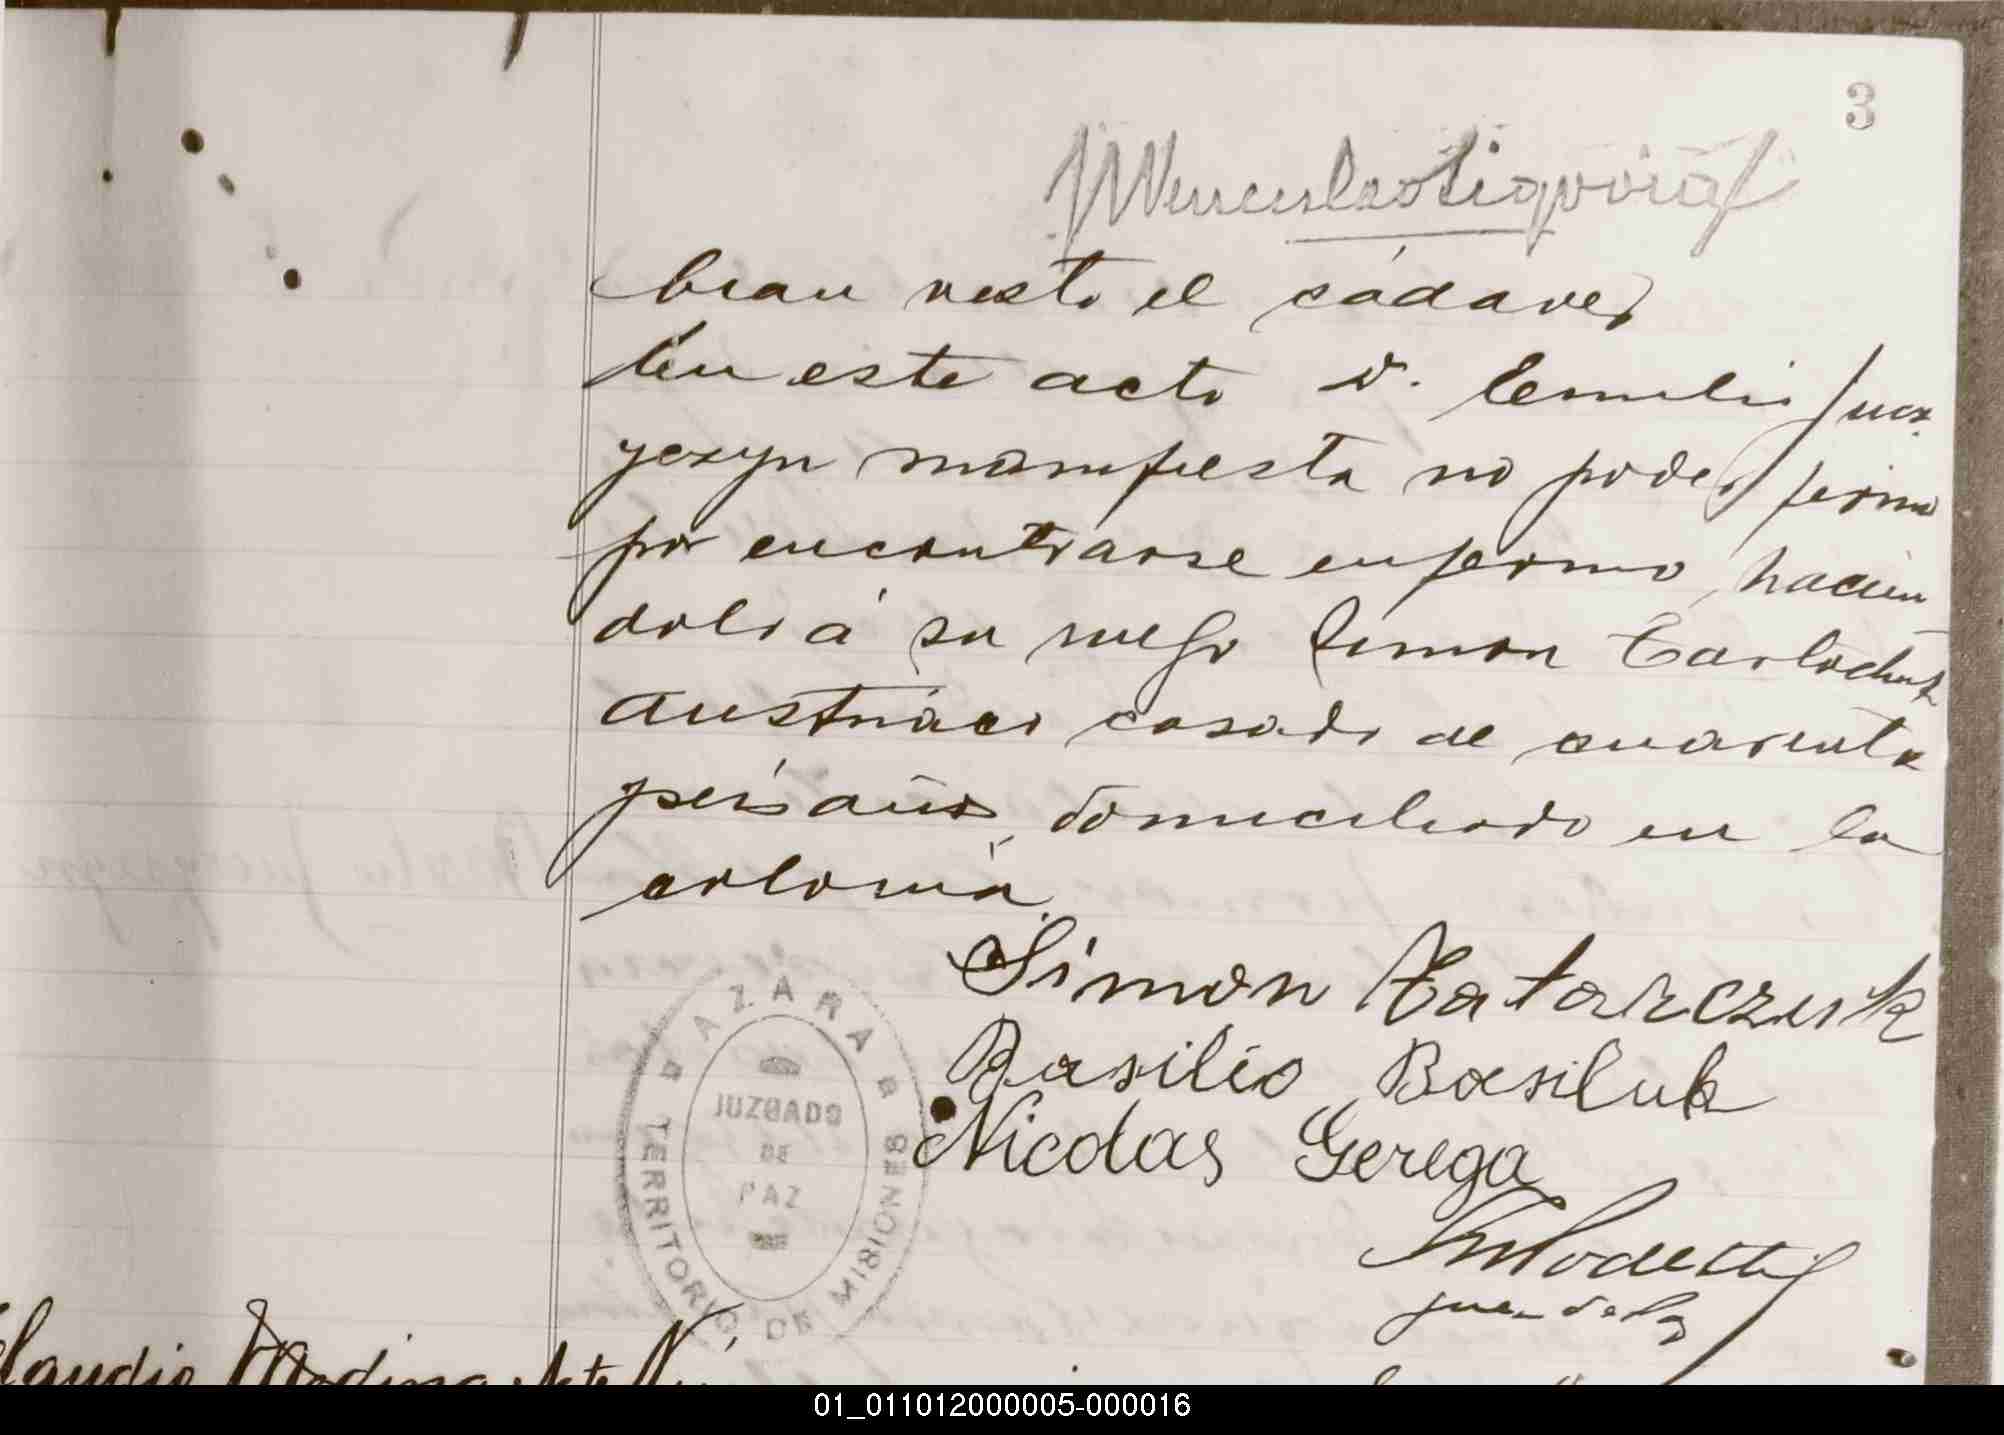 3
bian visto el cádaver
En este acto D. Emilio Jucz
yczyn manifiesta no poder firma
por encontrarse enfermo, hacien
dolo á su ruego Simon Tartochuk
austríaco casado de cuarenta
seis años, domiciliado en la
colonia.
Simon Tatarczuk
Basilio Basiluk
Nicolas Gerega
Juez de Paz
D AZARA B
JUZGADO
DE
PAZ
TERRITORIO DE MISIONES
Claudio Medina Acta
01_011012000005-000016